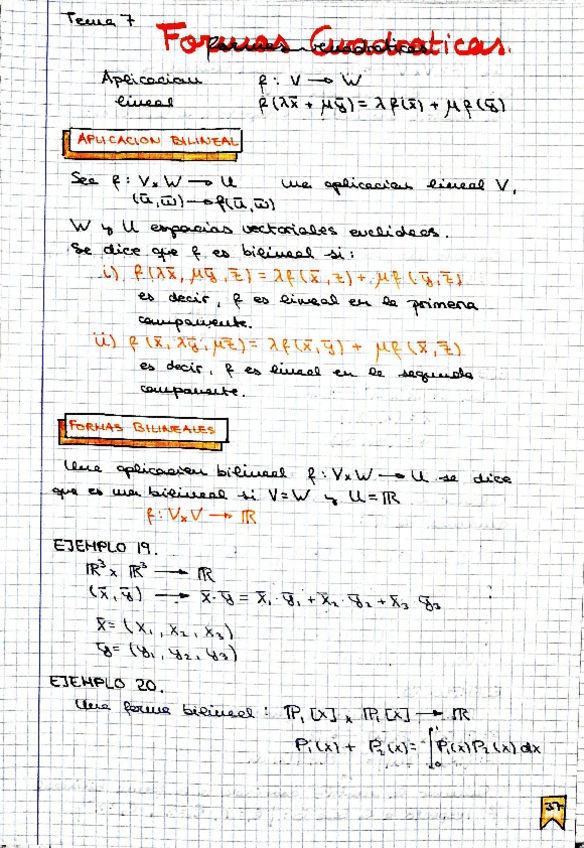 Tema 7
Formas Cuadraticas.
Aplicacion f: V → W
lineal f(λx̄ + μȳ) = λf(x̄) + μf(ȳ)
APLICACION BILINEAL
See f: VxW → U una aplicacion lineal V,
(ū, w̄) → f(ū, w̄)
W y U espacios vectoriales euclideos.
Se dice que f es bilineal si:
i) f(λx̄, μȳ, z̄) = λf(x̄, z) + μf(ȳ, z̄)
es decir, f es lineal en la primera
componente.
ii) f(x̄, λȳ, μz̄) = λf(x̄, ȳ) + μf(x̄, z̄)
es decir, f es lineal en la segunda
componente.
FORMAS BILINEALES
Una aplicacion bilineal f: VxW → U se dice
que es una bilineal si V=W y U=ℝ
f: VxV → ℝ
EJEMPLO 19.
ℝ³ x ℝ³ → ℝ
(x̄, ȳ) → x̄·ȳ = x̄₁·ȳ₁ + x̄₂·ȳ₂ + x̄₃·ȳ₃
x̄ = (x₁, x₂, x₃)
ȳ = (y₁, y₂, y₃)
EJEMPLO 20.
Una forma bilineal: ℙ₁[x] x ℙ₁[x] → ℝ
P₁(x) + P₂(x) = ∫₀¹ P₁(x)P₂(x) dx
37